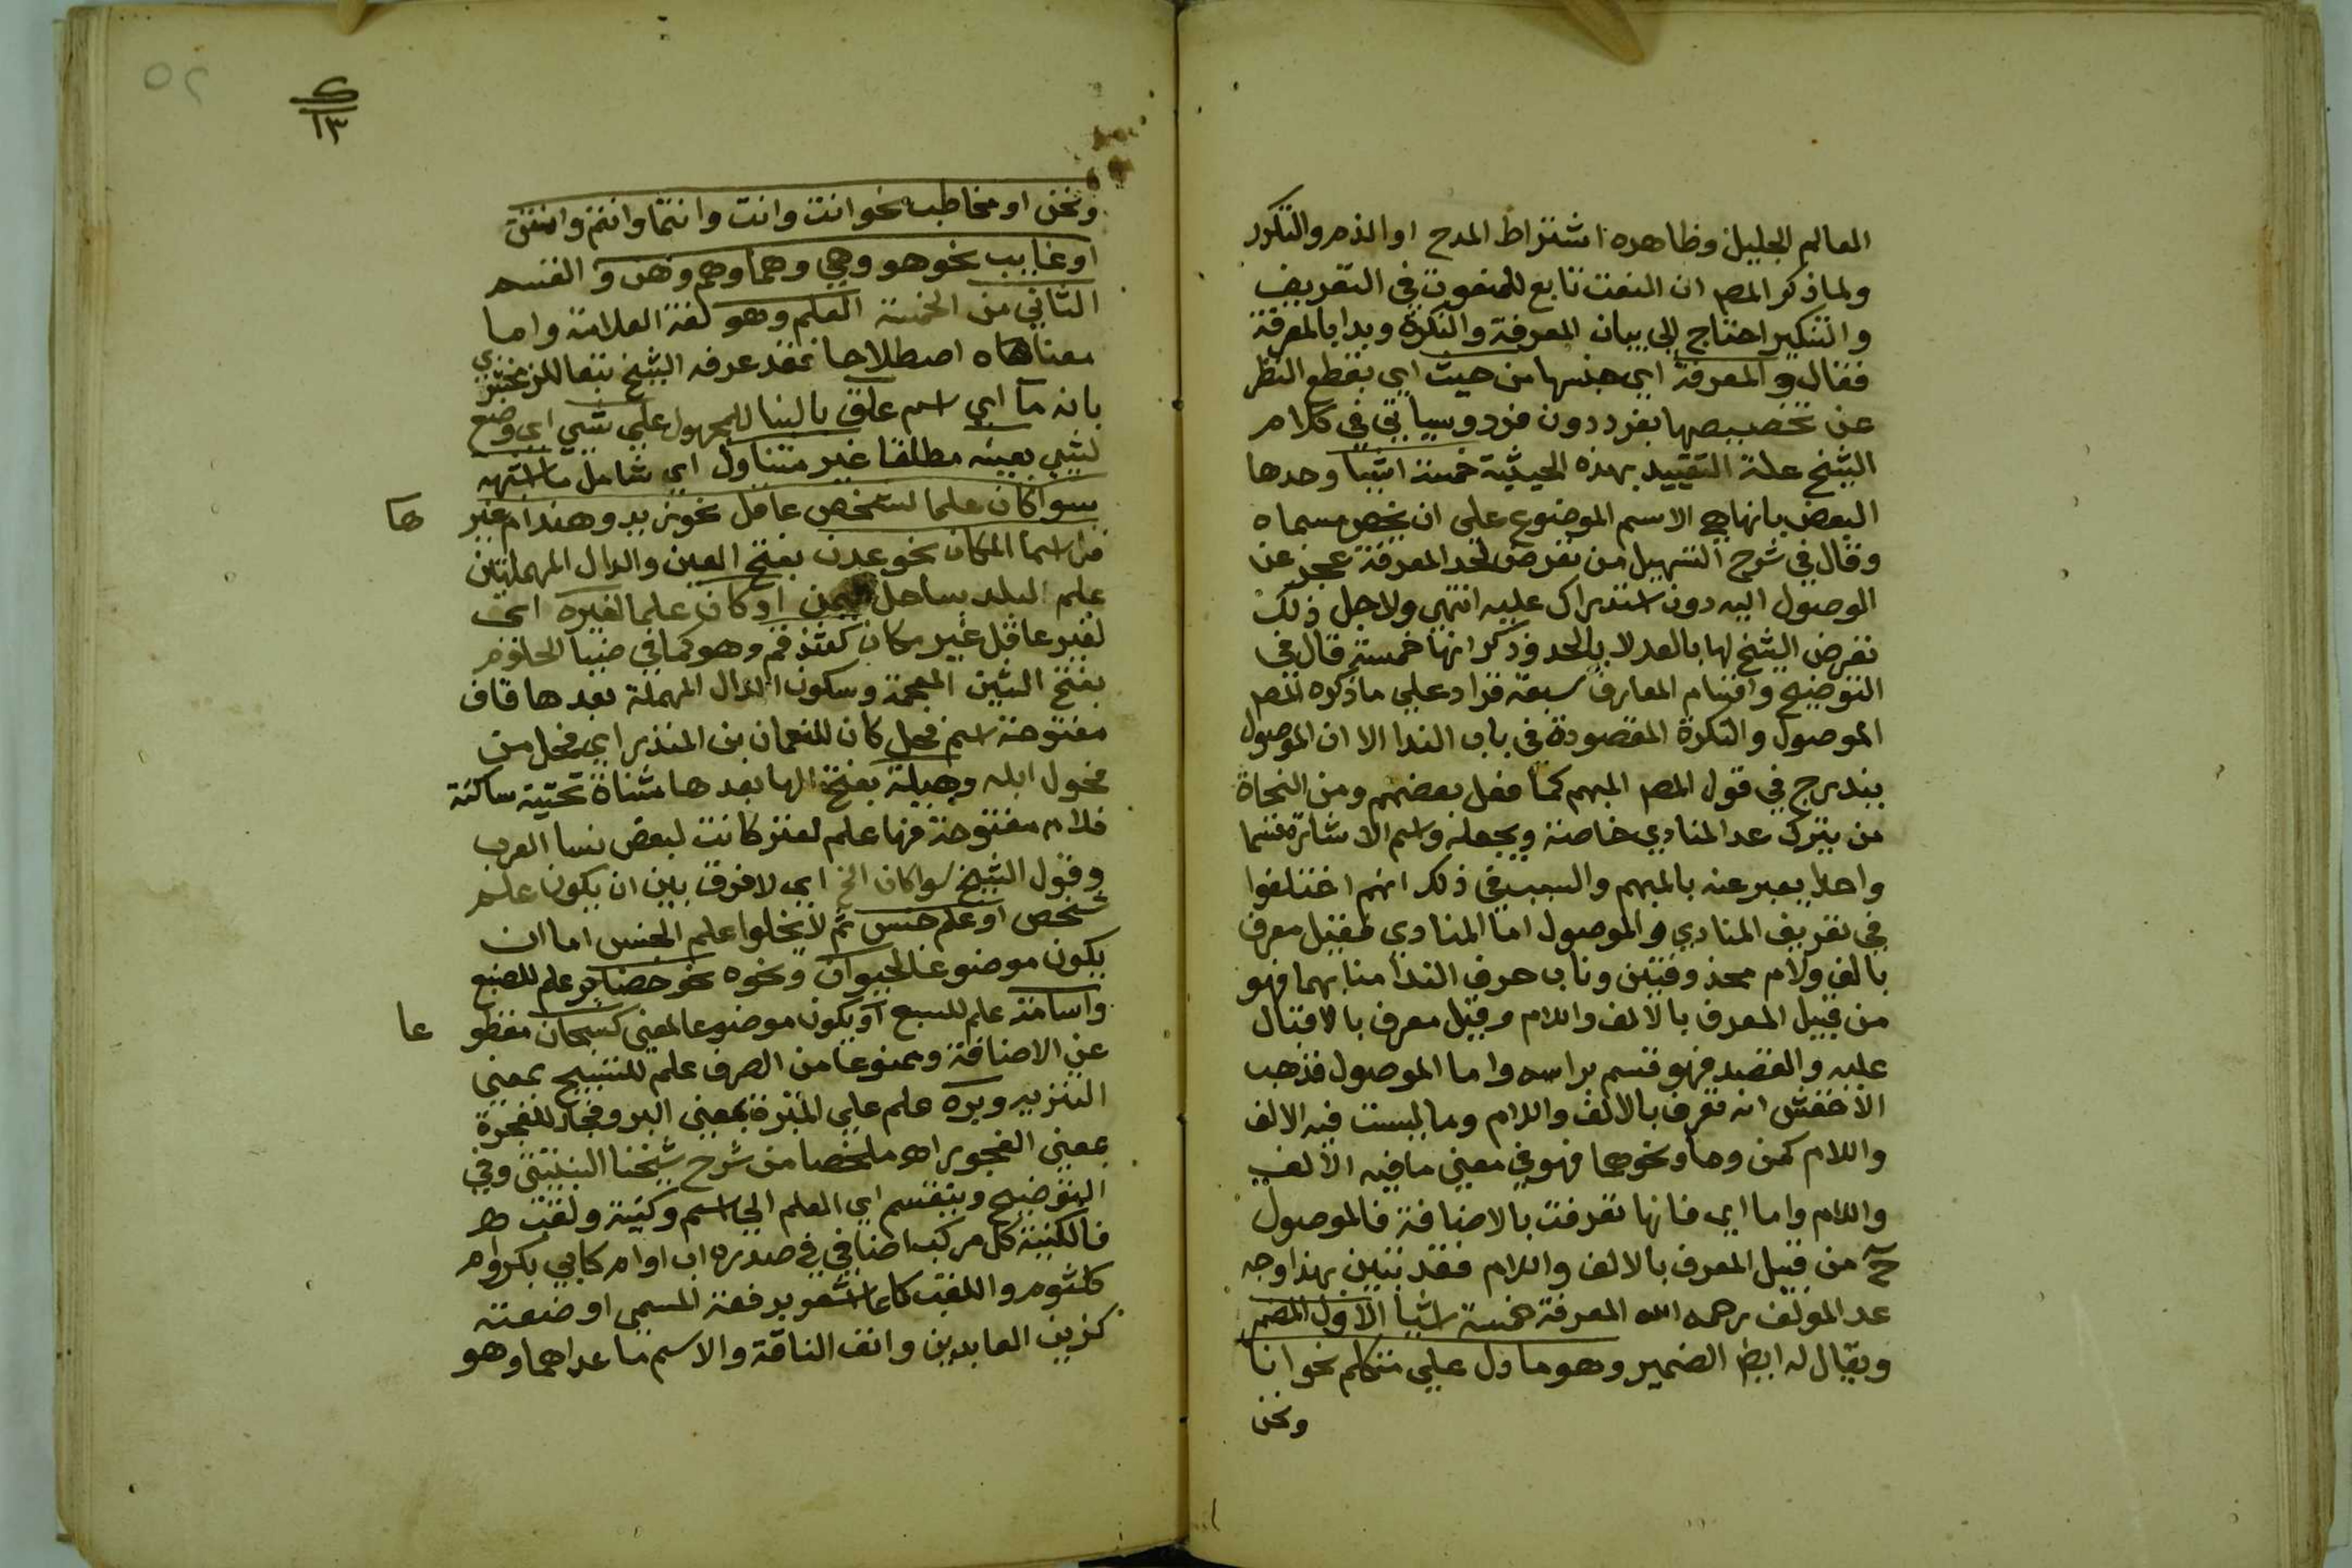 العالم الجليل وظاهره اشتراط المدح او الذم والتكور
ولما ذكر المص ان النعت تابع للمنعوت في التعريف
والتنكير احتاج الى بيان المعرفة والنكرة وبدا بالمعرفة
فقال والمعرفة اي جنسها من حيث اي بقطع النظر
عن تخصيصها بفرد دون فرد وسياتي في كلام
الشيخ علة التقييد بهذه الحيثية خمسة اشيا وحدها
البعض بانها هي الاسم الموضوع على ان يخص مسماه
وقال في شرح التسهيل من تعرض لحد المعرفة عجز عن
الوصول اليه دون استدراك عليه انتهي ولاجل ذلك
تعرض الشيخ لها بالعد لا بالحد وذكر انها خمسة قال في
التوضيح واقسام المعارف سبعة فزاد على ما ذكره المص
الموصول والنكرة المقصودة في باب الندا الا ان الموصول
يندرج في قول المص المبهم كما فعل بعضهم ومن النحاة
من يترك عد المنادي خاصة ويجعله واسم الاشارة قسما
واحدا يعبر عنه بالمبهم والسبب في ذلك انهم اختلفوا
في تعريف المنادي والموصول اما المنادي فقيل معرف
بالف ولام محذوفتين وناب حرف الندا منابهما فهو
من قبيل المعرف بالالف واللام وقيل معرف بالاقبال
عليه والقصد فهو قسم براسه واما الموصول فذهب
الاخفش انه تعرف بالالف واللام وما ليست فيه الالف
واللام كمن وما ونحوهما فهو في معني ما فيه الالف
واللام واما اي فانها تعرفت بالاضافة فالموصول
ح من قبيل المعرف بالالف واللام فقد تبين بهذا وجه
عد المولف رحمه الله المعرفة خمسة اشيا الاول المضمر
ويقال له ايضا الضمير وهو ما دل علي متكلم نحو انا
ونحن
٥٢
ونحن او مخاطب نحو انت وانت وانتما وانتم وانتن
او غايب نحو هو وهي وهما وهم وهن والقسم
الثاني من الخمسة العلم وهو لغة العلامة واما
معناه اصطلاحا فقد عرفه الشيخ تبعا للزمخشري
بانه ما اي اسم علق بالبنا للمجهول علي شي اي وضع
لشي بعينه مطلقا غير متناول اي شامل ما اشبهه
سوا كان علما لشخص عاقل نحو زيد وهند ام غير
ها
من اسما المكان نحو عدن بفتح العين والدال المهملتين
علم البلد بساحل اليمن او كان علما لغيره اي
لغير عاقل غير مكان كشذقم وهو كما في ضيا الحلوم
بفتح الشين المعجمة وسكون الدال المهملة بعدها قاف
مفتوحة اسم فحل كان للنعمان بن المنذر اي فحل من
فحول ابله وهيلة بفتح الها بعدها مثناة تحتية ساكنة
فلام مفتوحة فها علم لعنز كانت لبعض نسا العرب
وقول الشيخ سوا كان الخ اي لا فرق بين ان يكون علم
شخص او علم جنس ثم لا يخلوا علم الجنس اما ان
يكون موضوعا لحيوان ونحوه نحو حضاجر علم للضبع
واسامة علم للسبع او يكون موضوعا لمعني كسبحان مقطو
عا
عن الاضافة وممنوعا من الصرف علم للتسبيح بمعني
التنزيه وبره علم علي المبرة بمعني البر وفجار للفجرة
بمعني الفجور اهـ ملخصا من شرح شيخنا النبتيتي وفي
التوضيح وينقسم اي العلم الي اسم وكنية ولقب
فالكنية كل مركب اضافي في صدره اب او ام كابي بكر وام
كلثوم واللقب كل ما اشعر برفعة المسمي او ضعته
كزين العابدين وانف الناقة والاسم ما عداهما وهو